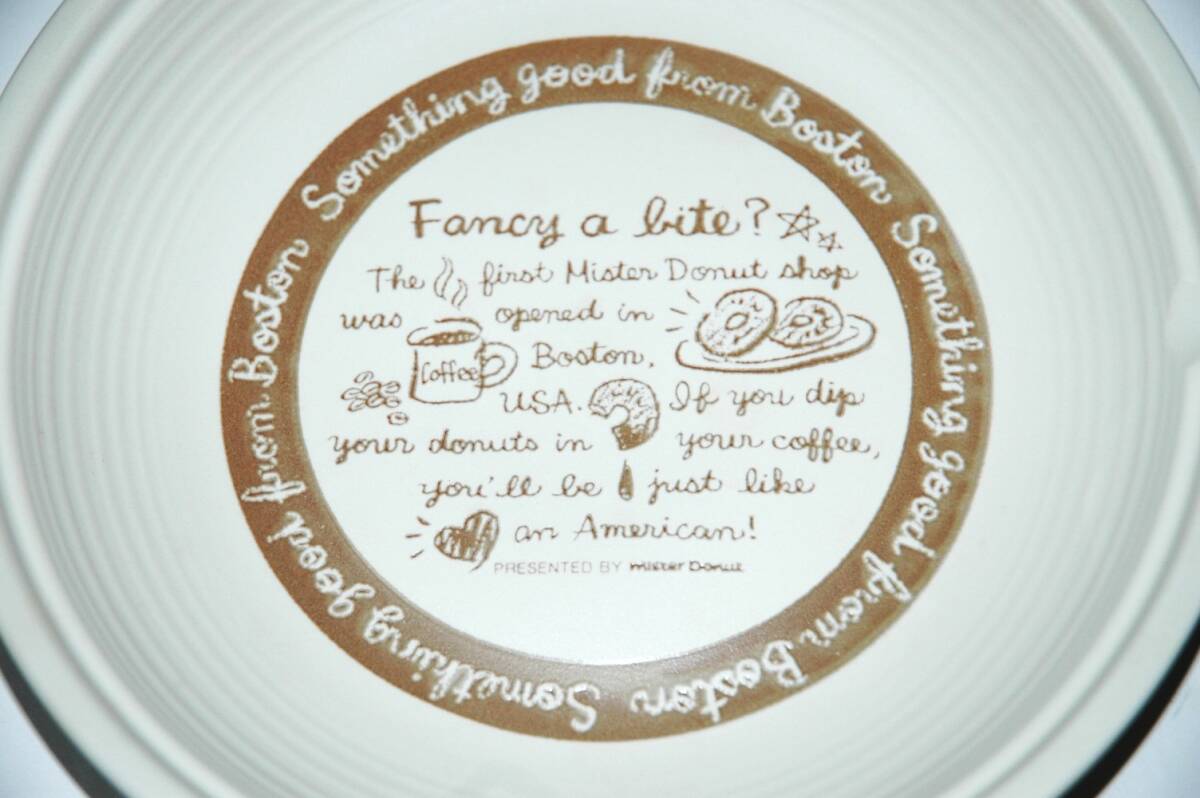 Something good from Boston Something good from Boston Something good from Boston
Fancy a bite?
The first Mister Donut shop
was opened in
Coffee Boston,
USA. If you dip
your donuts in your coffee,
you'll be just like
an American!
PRESENTED BY mister Donut